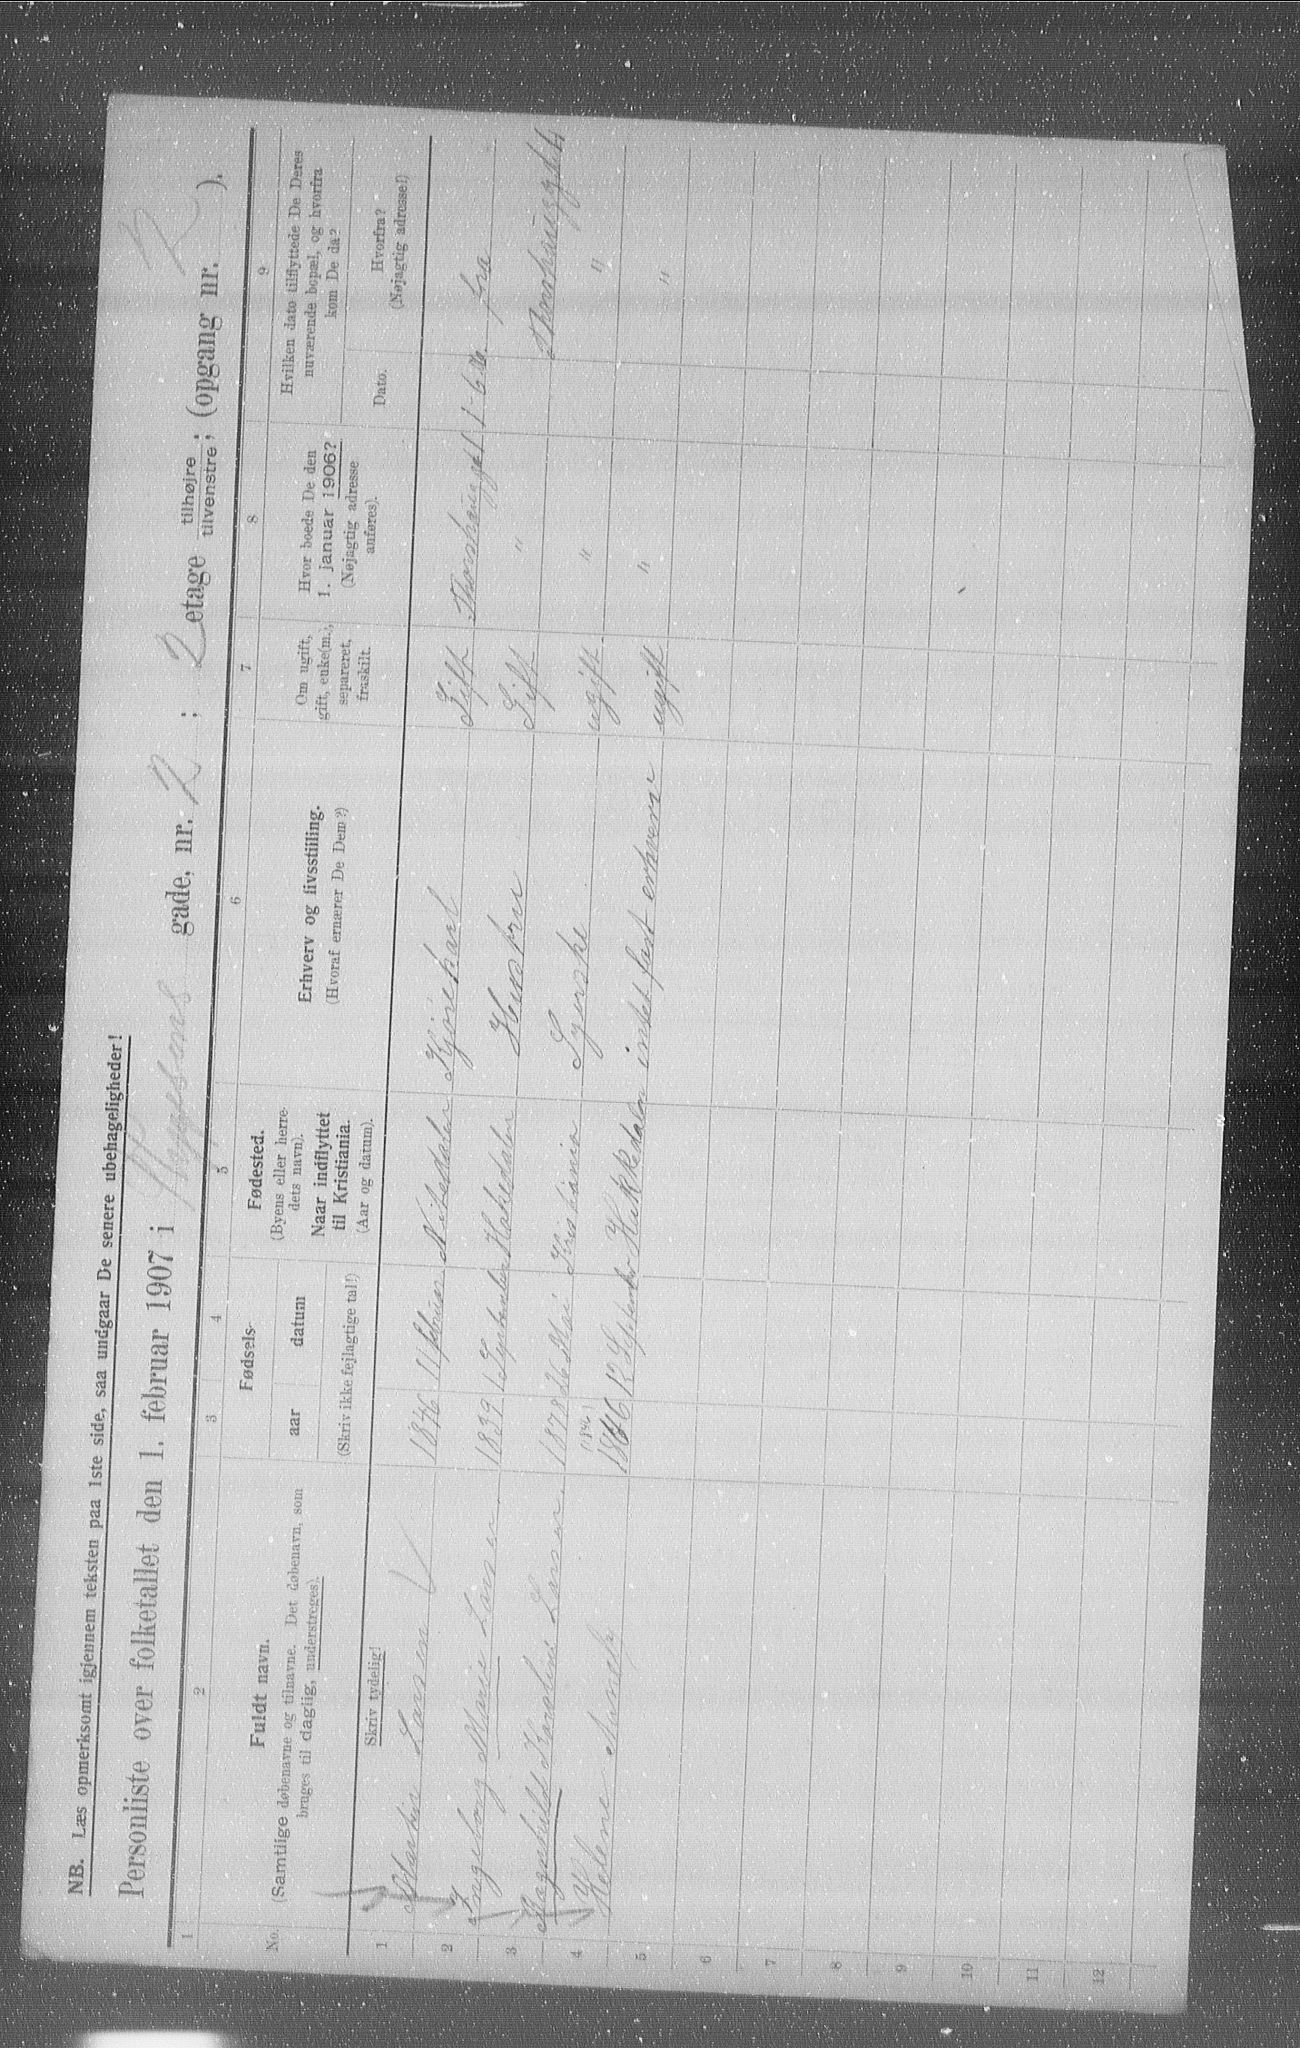 NB. Læs opmerksomt igjennem teksten paa 1ste side, saa undgaar De senere ubehageligheder!
Personliste over folketallet den 1. februar 1907 i gade, nr. 2 ; 2 etage tilhøjre tilvenstre; (opgang nr. ).
1 2 3 4 5 6 7 8 9
No.
Fuldt navn.
(Samtlige døbenavne og tilnavne. Det døbenavn, som
bruges til daglig, understreges).
Skriv tydelig!
Fødsels-
aar datum
(Skriv ikke fejlagtige tal!)
Fødested.
(Byens eller herre-
dets navn).
Naar indflyttet
til Kristiania.
(Aar og datum).
Erhverv og livsstilling.
(Hvoraf ernærer De Dem?)
Om ugift,
gift, enke(m.,
separeret,
fraskilt.
Hvor boede De den
1. januar 1906?
(Nøjagtig adresse
anføres).
Hvilken dato tilflyttede De Deres
nuværende bopæl, og hvorfra
kom De da?
Dato.
Hvorfra?
(Nøjagtig adresse!)
1 Martin Larsen 1846 11 Nitedalen Kjørekarl Gift 1-6 fra
2 Ingeborg Marie Larsen 1839 1 September Hakedalen Hustru Gift "
3 Ragnhild Karoline Larsen 1878 26 Mai Kristiania Syerske ugift " "
4 Helene 12 September Hakkedalen intet fast erhverv ugift " "
5
6
7
8
9
10
11
12